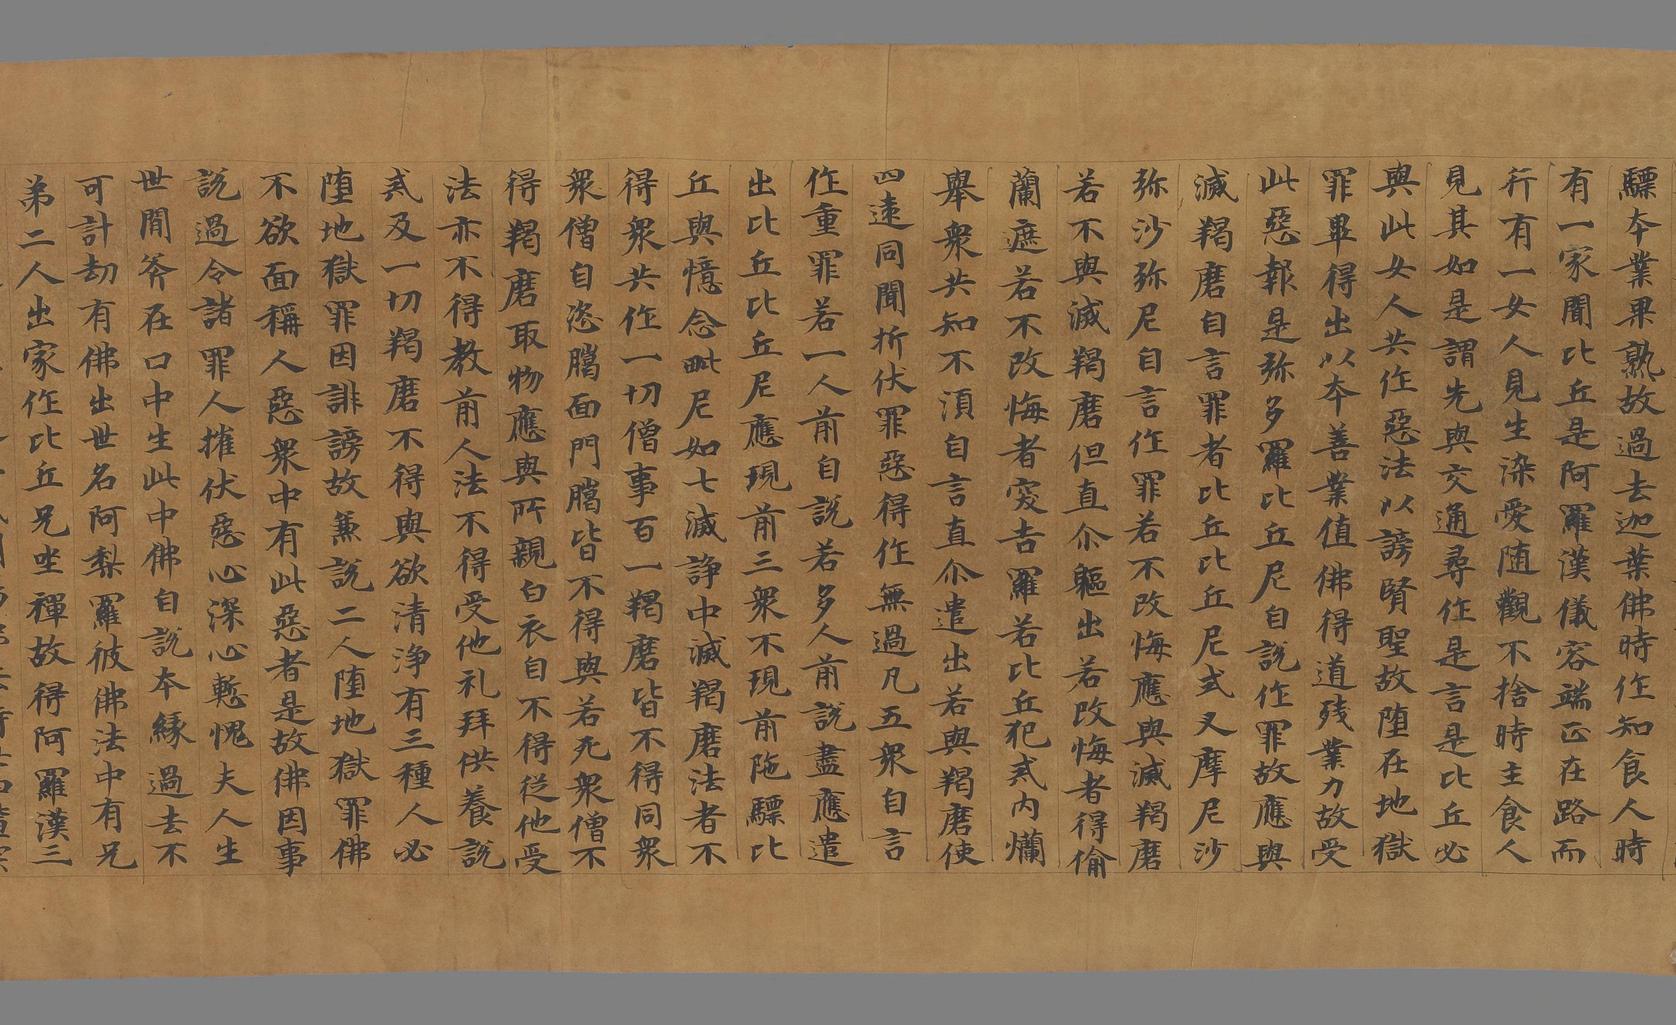 驃本業果熟故過去迦葉佛時作知食人時
有一家聞比丘是阿羅漢儀容端正在路而
行有一女人見生染愛随觀不捨時主食人
見其如是謂先與交通尋作是言是比丘必
與此女人共作惡法以謗賢聖故堕在地獄
罪畢得出以本善業值佛得道残業力故受
此惡報是弥多羅比丘尼自說作罪故應與
滅羯磨自言罪者比丘比丘尼式叉摩尼沙
弥沙弥尼自言作罪若不改悔應與滅羯磨
若不與滅羯磨但直尒軀出若改悔者得偷
蘭遮若不改悔者突吉羅若比丘犯式内爛
舉衆共知不湏自言直尒遣出若與羯磨使
四遠同聞折伏罪惡得作無過凡五衆自言
作重罪若一人前自說若多人前說盡應遣
出比丘比丘尼應現前三衆不現前陁驃比
丘與憶念毗尼如七滅諍中滅羯磨法者不
得衆共作一切僧事百一羯磨皆不得同衆
衆僧自恣臈面門臈皆不得與若死衆僧不
得羯磨取物應與所親白衣自不得従他受
法亦不得教前人法不得受他礼拜供養說
式及一切羯磨不得與欲清浄有三種人必
堕地獄罪因誹謗故兼說二人堕地獄罪佛
不欲面稱人惡衆中有此惡者是故佛因事
說過令諸罪人摧伏惡心深心慙愧夫人生
世間斧在口中生此中佛自說本縁過去不
可計劫有佛出世名阿梨羅彼佛法中有兄
弟二人出家作比丘兄坐禪故得阿羅漢三